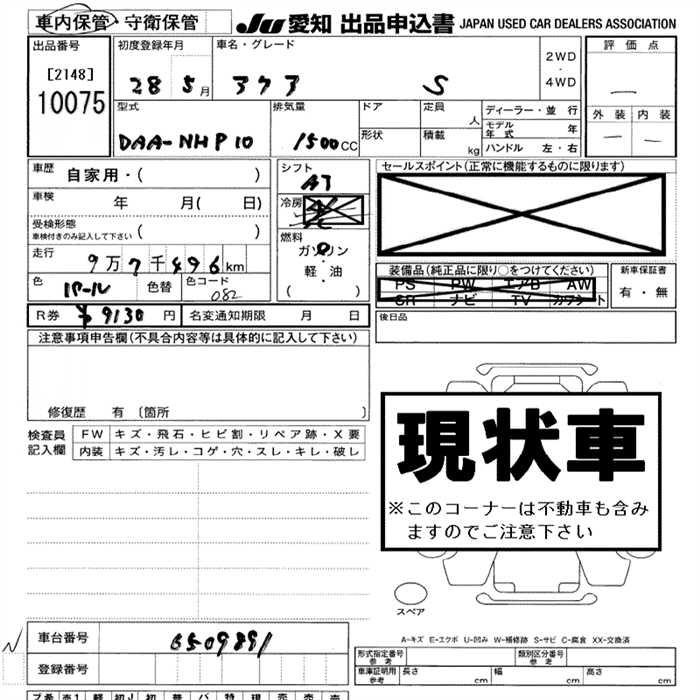 車内保管・守衛保管 JU 愛知 出品申込書 JAPAN USED CAR DEALERS ASSOCIATION
出品番号 初度登録年月 車名・グレード 評価点
[2148] 28 5月 アクア S 2WD・4WD
10075
型式 排気量 ドア 定員 人 ディーラー・並行 外装 内装
DAA-NHP10 1500cc 形状 積載 kg モデル年式 年
ハンドル 左・右
車歴 自家用・( ) シフト AT セールスポイント(正常に機能するものに限ります)
車検 年 月( 日) 冷房
受検形態 車検付きのみ記入して下さい ( ) 燃料 ガソリン
走行 9万7千496km 軽・油 装備品(純正品に限り○をつけてください) 新車保証書
色 パール 色替 色コード 082 ( ) PS PW エアB AW 有・無
SR ナビ TV カワシート
R券 ¥9130円 名変通知期限 月 日 後日品
注意事項申告欄(不具合内容等は具体的に記入して下さい)
修復歴 有〔箇所 〕
検査員記入欄 FW キズ・飛石・ヒビ割・リペア跡・X要
内装 キズ・汚レ・コゲ・穴・スレ・キレ・破レ
現状車
※このコーナーは不動車も含み
ますのでご注意下さい
スペア
A-キズ E-エクボ U-凹み W-補修跡 S-サビ C-腐食 XX-交換済
車台番号 6509891
登録番号
型式指定番号 参考 類別区分番号 参考
車庫証明用 参考 長さ cm 幅 cm 高さ cm